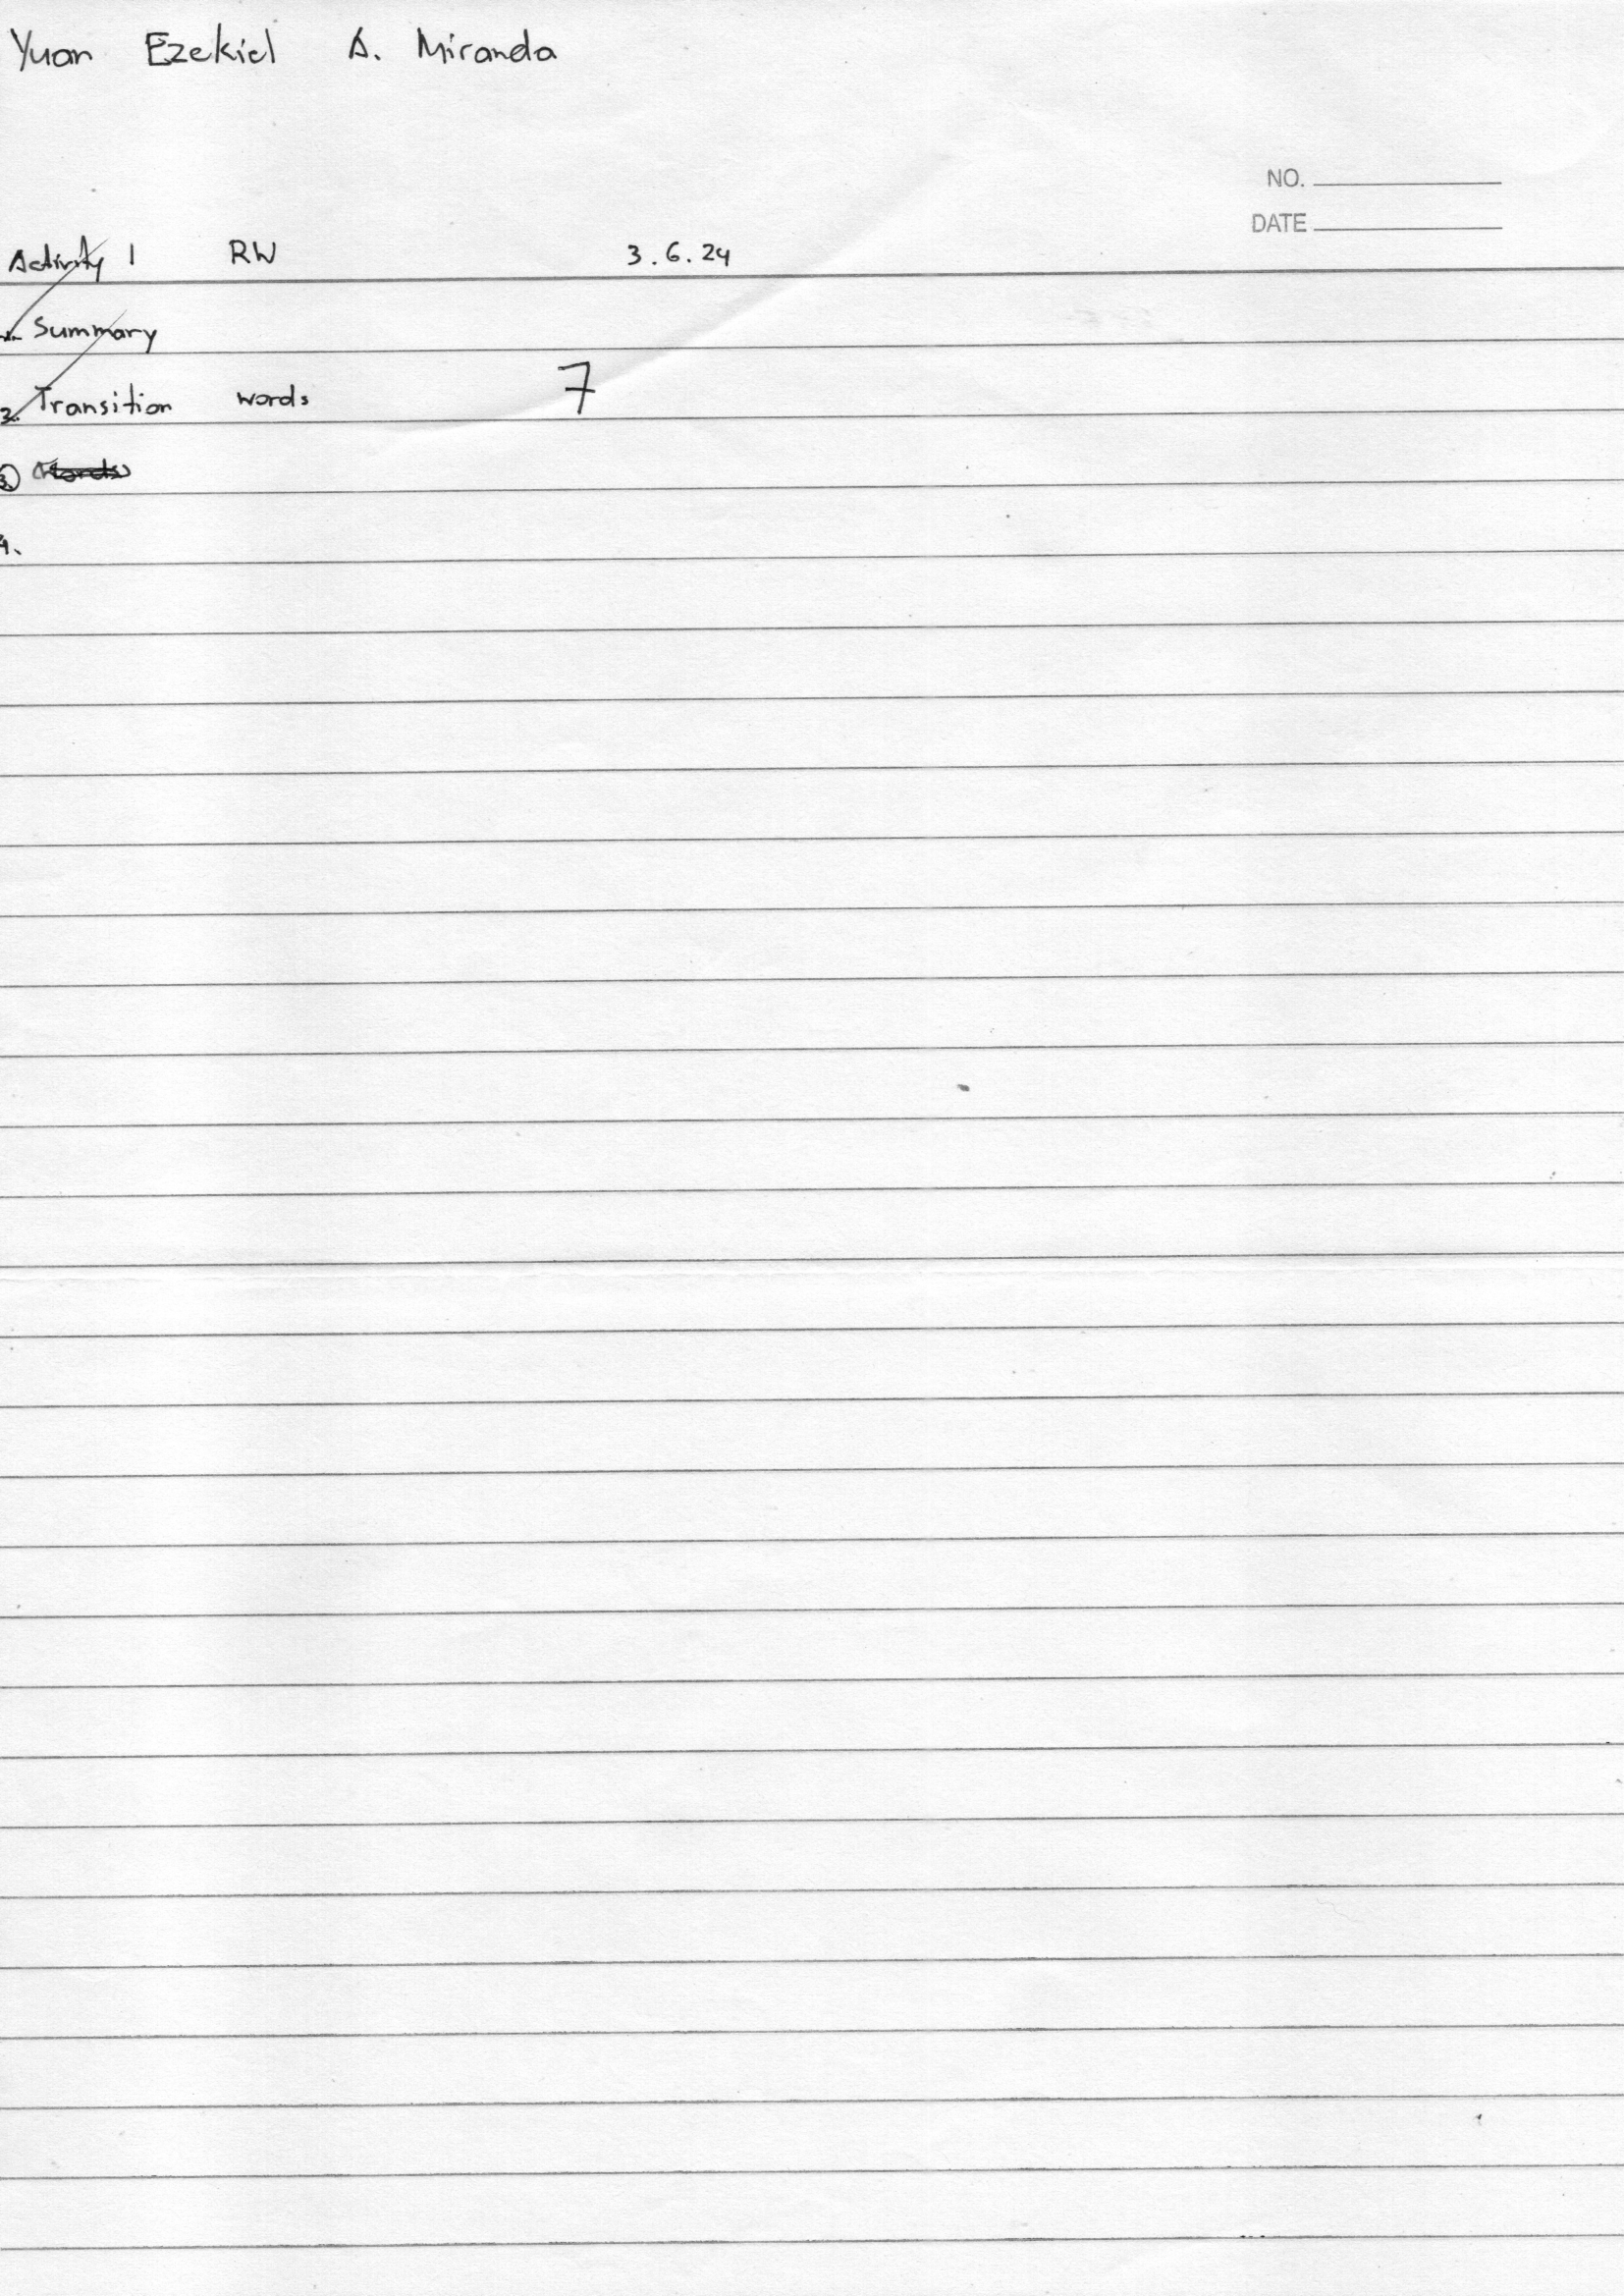 Yuan Ezekiel A. Miranda
NO.
DATE
Activity 1 RW 3.6.24
Summary
2. Transition words 7
3
4.